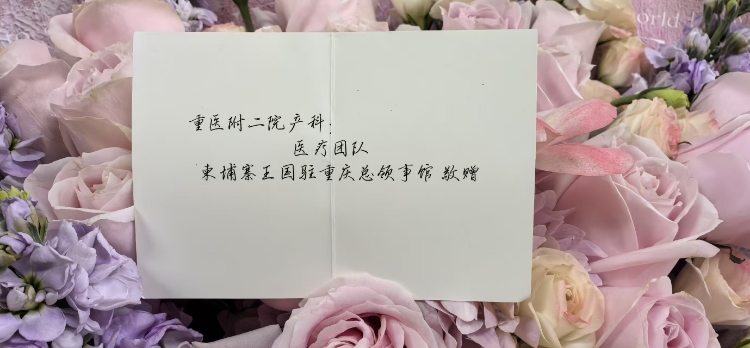 world
重医附二院产科:
医疗团队
柬埔寨王国驻重庆总领事馆 敬赠